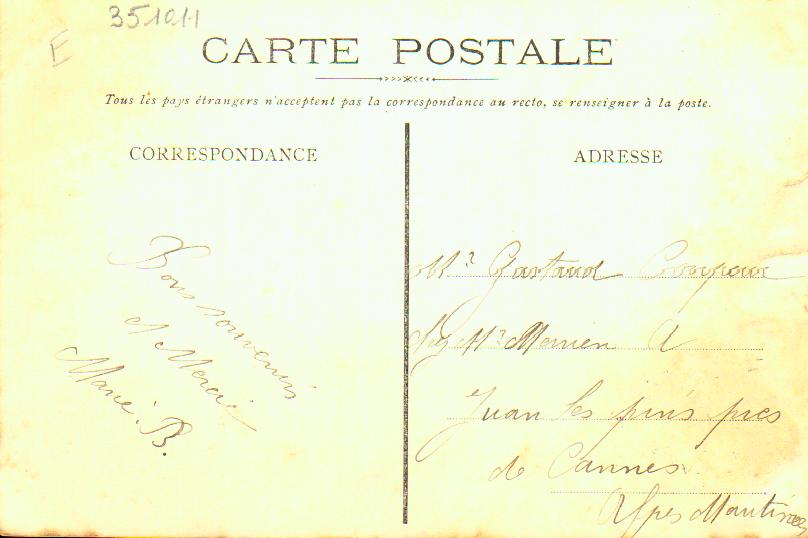 351011
E
CARTE POSTALE
Tous les pays étrangers n'acceptent pas la correspondance au recto, se renseigner à la poste.
CORRESPONDANCE
Bons souvenirs
et Merci
Marie. B.
ADRESSE
Mr Gastaud
chez Mr A
Juan les pins pres
de Cannes
Alpes Maritimes